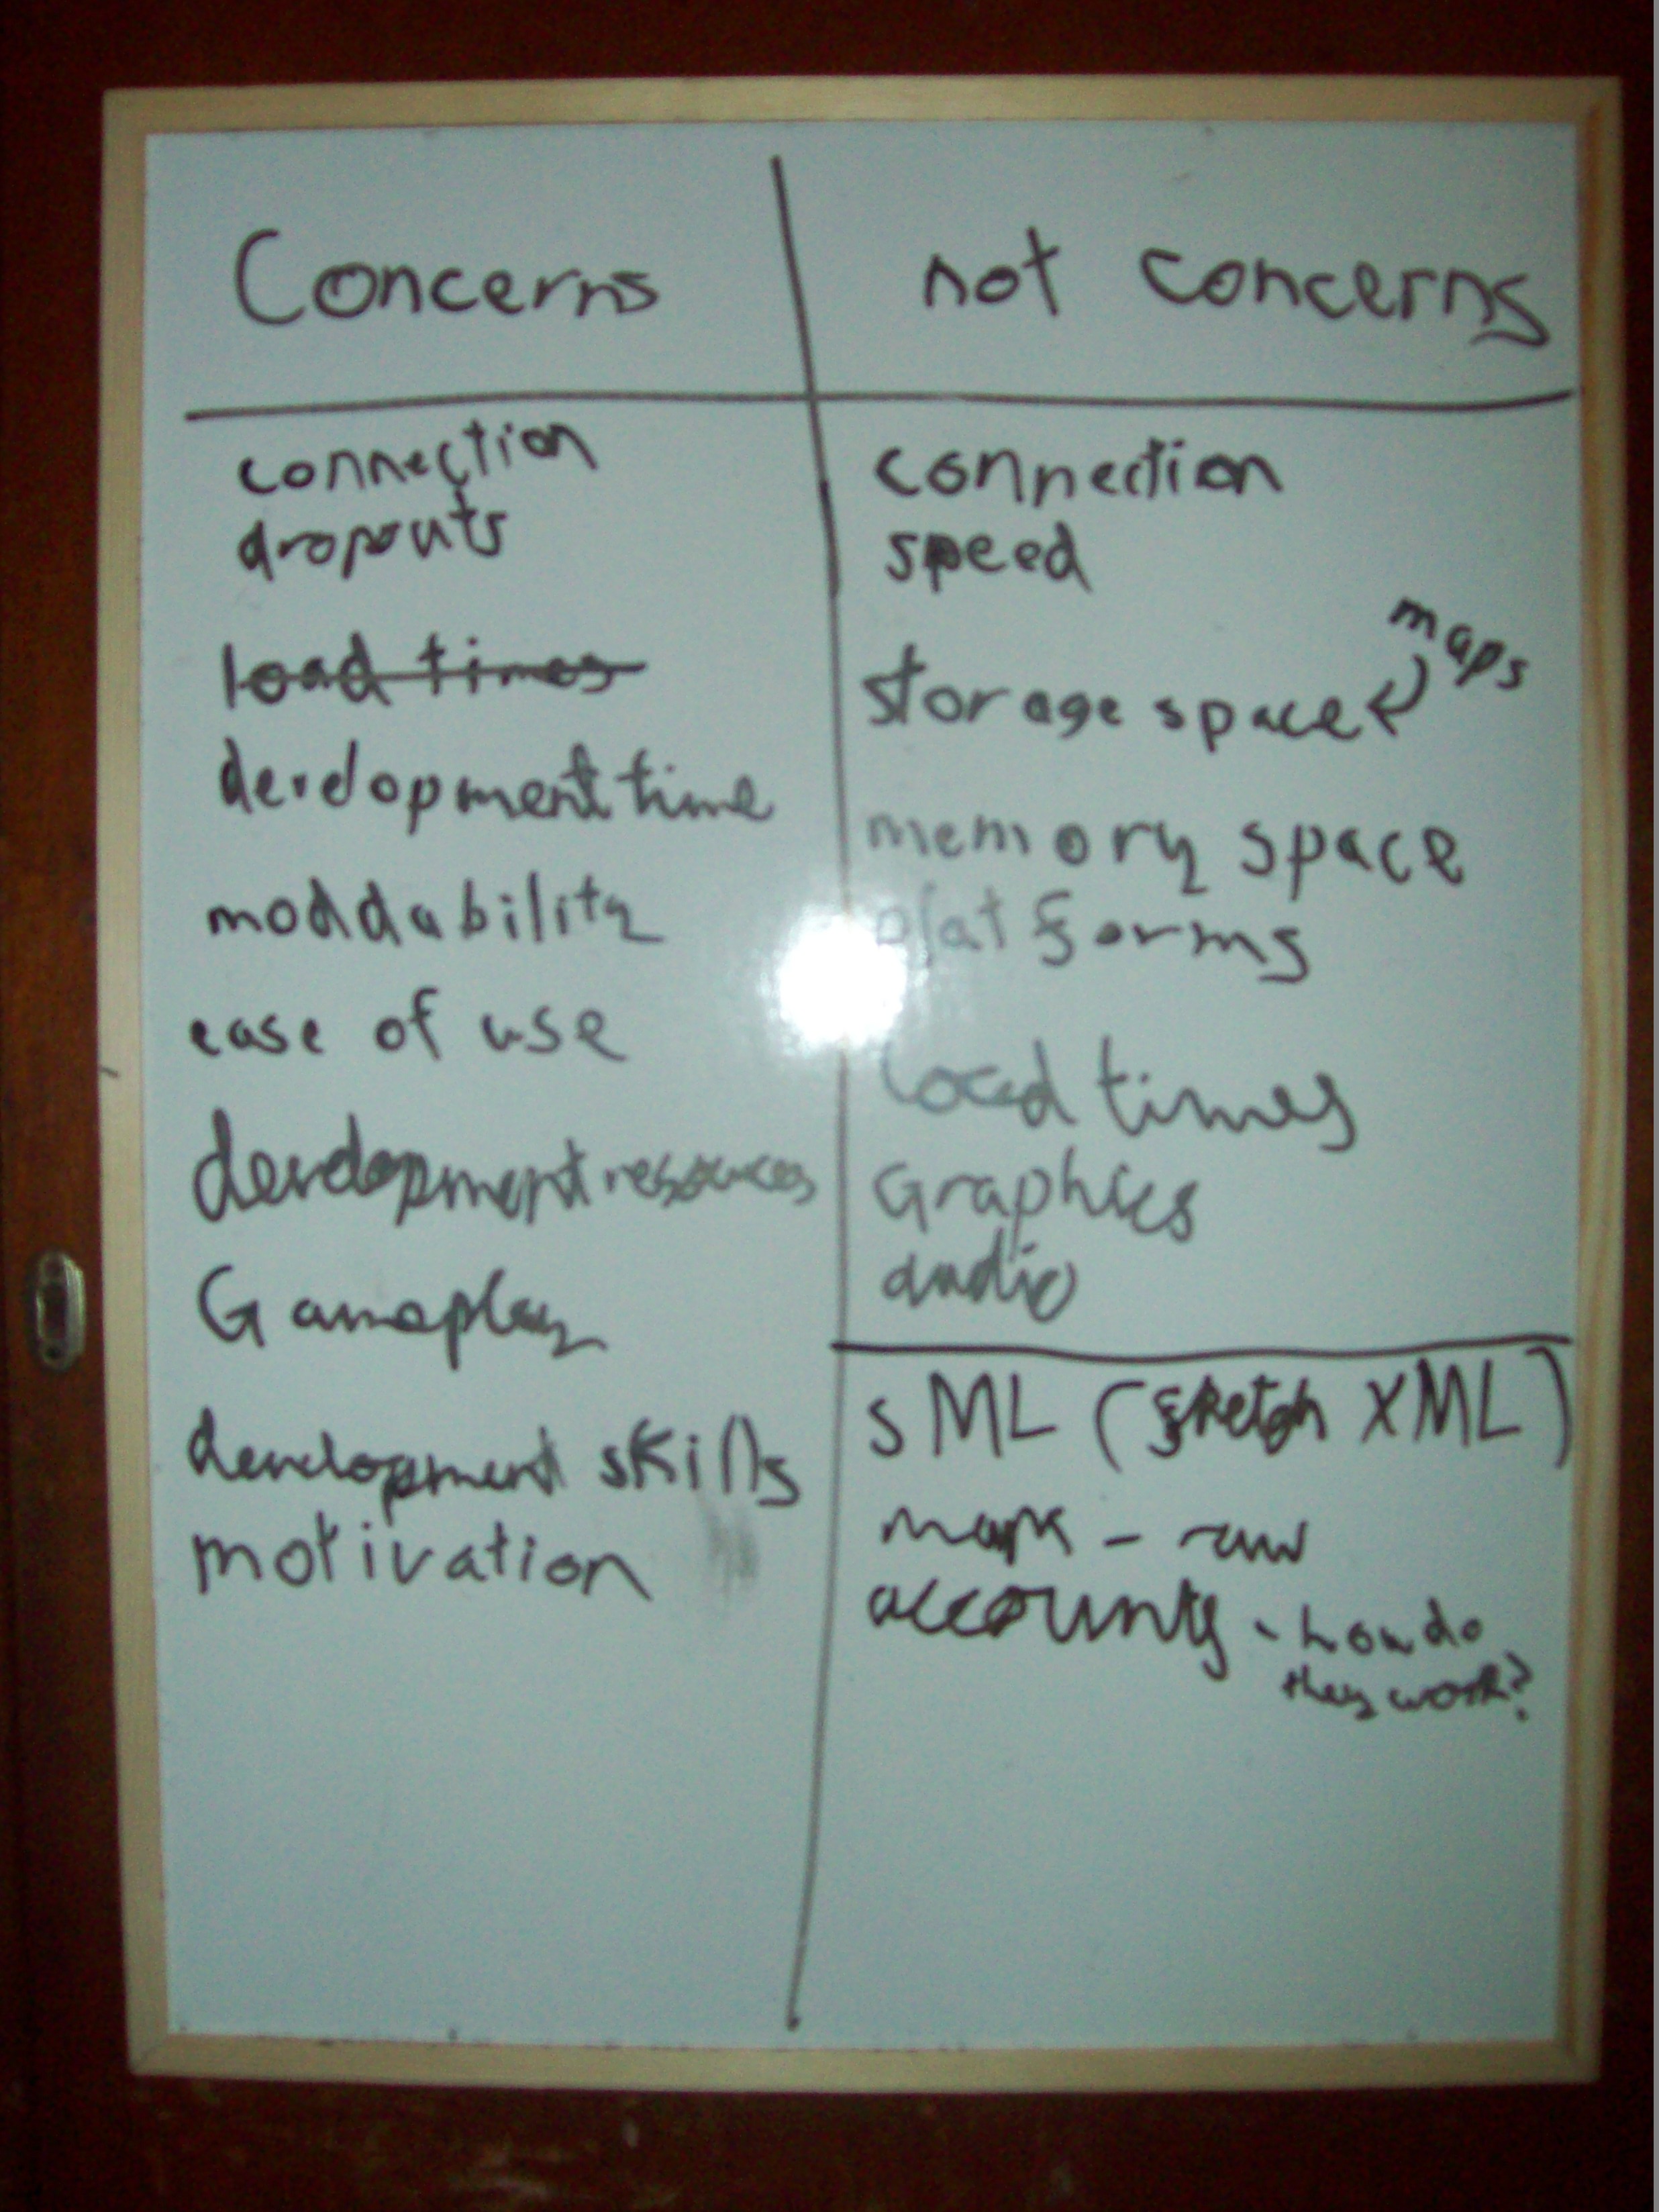 Concerns
connection
dropouts
load times
development time
moddability
ease of use
development resources
Gameplay
development skills
motivation
not concerns
connection
speed
maps
storage space
memory space
platforms
load times
Graphics
audio
SML (sketch XML)
maps - raw
accounts - how do
they work?